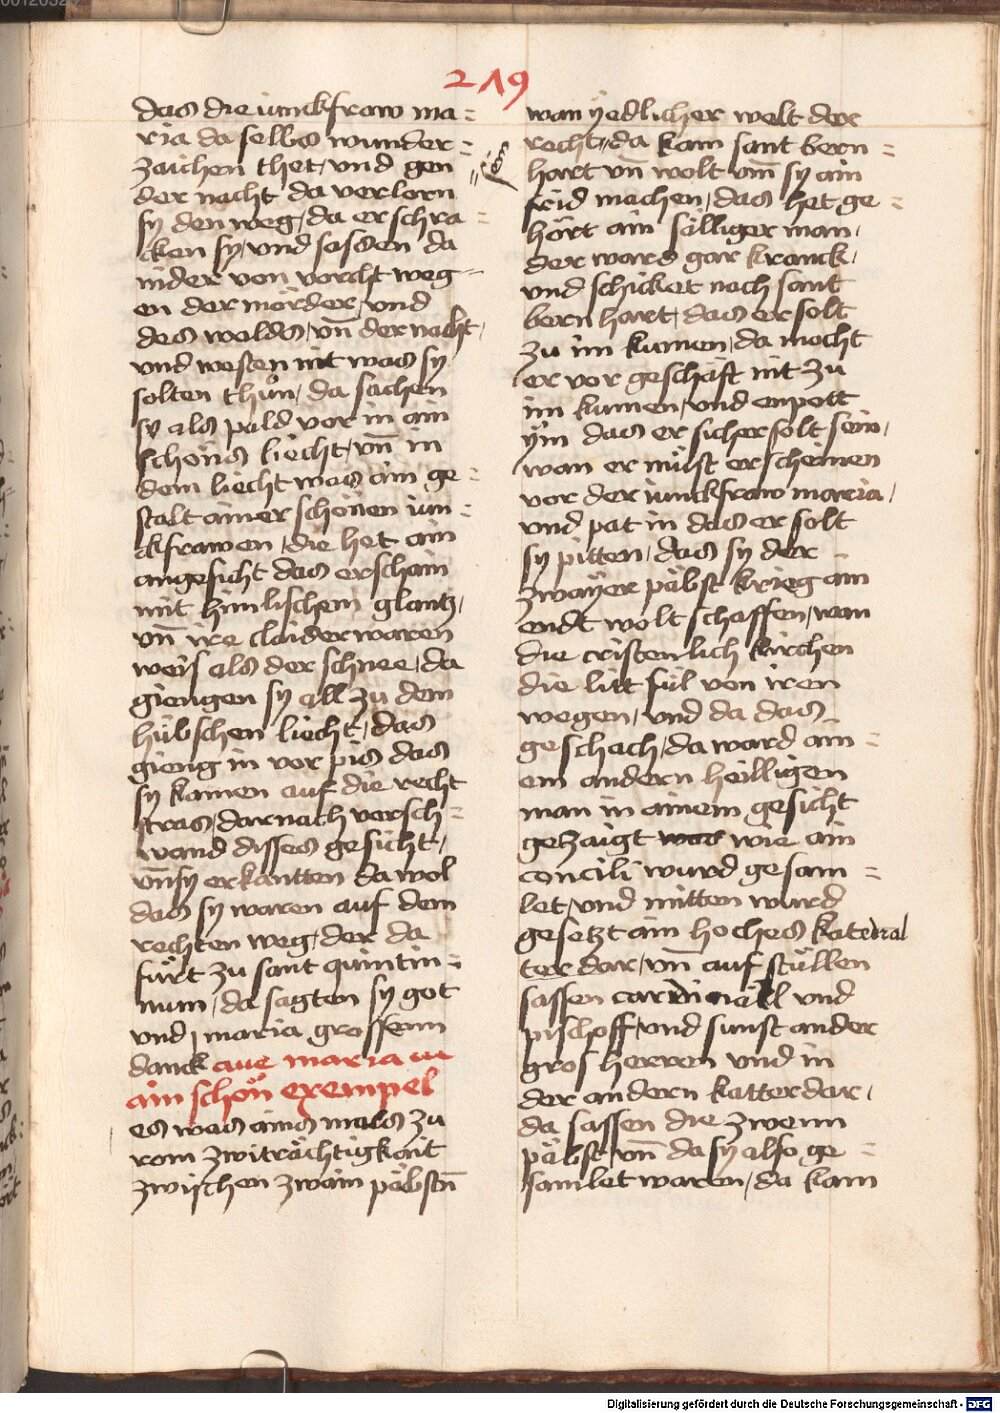 219
das die iunckfraw ma=
ria da selbs wunder=
zaichen thet, und gen
der nacht da verlorn
sy den weg, da erschra=
cken sy, und sassen da
nider von vorcht weg=
en der mörder, und
des walds, vn̄ der nacht,
und westen nit was sy
solten thůn, da sachen
sy als pald vor in ain
schöns liecht, vn̄ in
dem liecht was ain ge=
stalt ainer schönen iun=
ckfrawen, die het ain
angesicht das erschain
mit himlischem glantz,
vn̄ ire claider waren
weis als der schnee, da
giengen sy all zu dem
hübschen liecht, das
gieng in vor pis das
sy kamen auf die recht
stras, darnach versch=
wand disses gesicht,
vn̄ sy erkantten da wol
das sy waren auf dem
rechten weg, der da
fürt zu sant quintin=
num, da sagten sy got
und maria grossenn
danck aue maria
ain schön exempel
es was ains mals zu
rom zwiträchtigkait
zwischen zwain päbstn̄
wan yedlicher welt der
recht, da kam sant bern=
hart vn̄ wolt vm̄ sy ain
frid machen, das het ge=
hört ain sälliger man,
der ward gar kranck,
und schicket nach sant
bernhart, das er solt
zu im kumen, da mocht
er vor geschäft nit zu
im kumen, und enpott
ÿm das er sicher solt sein,
wan er müst erscheinen
vor der iunckfraw maria,
und pat in das er solt
sy pitten, das sy der
zwayer päbst krieg ain
endt wolt schaffen, wan
die cristenlich kirchen
die litt fül von iren
wegen, und da das
geschach, da ward ain=
em andern heilligen
man in ainem gesicht
gezaigt wie ain
concili wurd gesam=
let, und mitten wurd
gesetzt ain hoches katedral
ter dar, vn̄ auf stüllen
sassen cardinäll und
pischoff, und sunst ander
gros herren und in
der andern katterdar,
da sassen die zwenn
päbst, vn̄ da sy also ge=
samlet waren, da kam
Digitalisierung gefördert durch die Deutsche Forschungsgemeinschaft - DFG